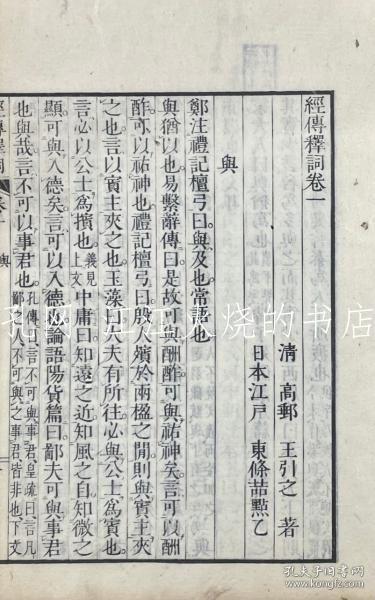 經傳釋詞卷一
清 高郵 王引之 著
日本江戶 東條喆點乙
與
鄭注禮記檀弓曰與及也常語也
與猶以也易繫辭傳曰是故可與酬酢可與祐神矣言可以酬
酢可以祐神也禮記檀弓曰殷人殯於兩楹之閒則與賓主夾
之也言以賓主夾之也玉藻曰大夫有所往必與公士爲賓也
言必以公士爲擯也義見上文中庸曰知遠之近知風之自知微之
顯可與入德矣言可以入德也論語陽貨篇曰鄙夫可與事君
也與哉言不可以事君也孔傳曰言不可與事君皇疏曰言凡鄙之人不可與之事君皆非也下文
經傳釋詞 卷一 與
孔夫子旧书网